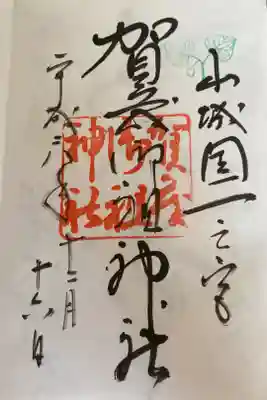 山城国一之宮
賀茂御祖神社
平成二八年十二月
十六日
賀茂
御祖
神社